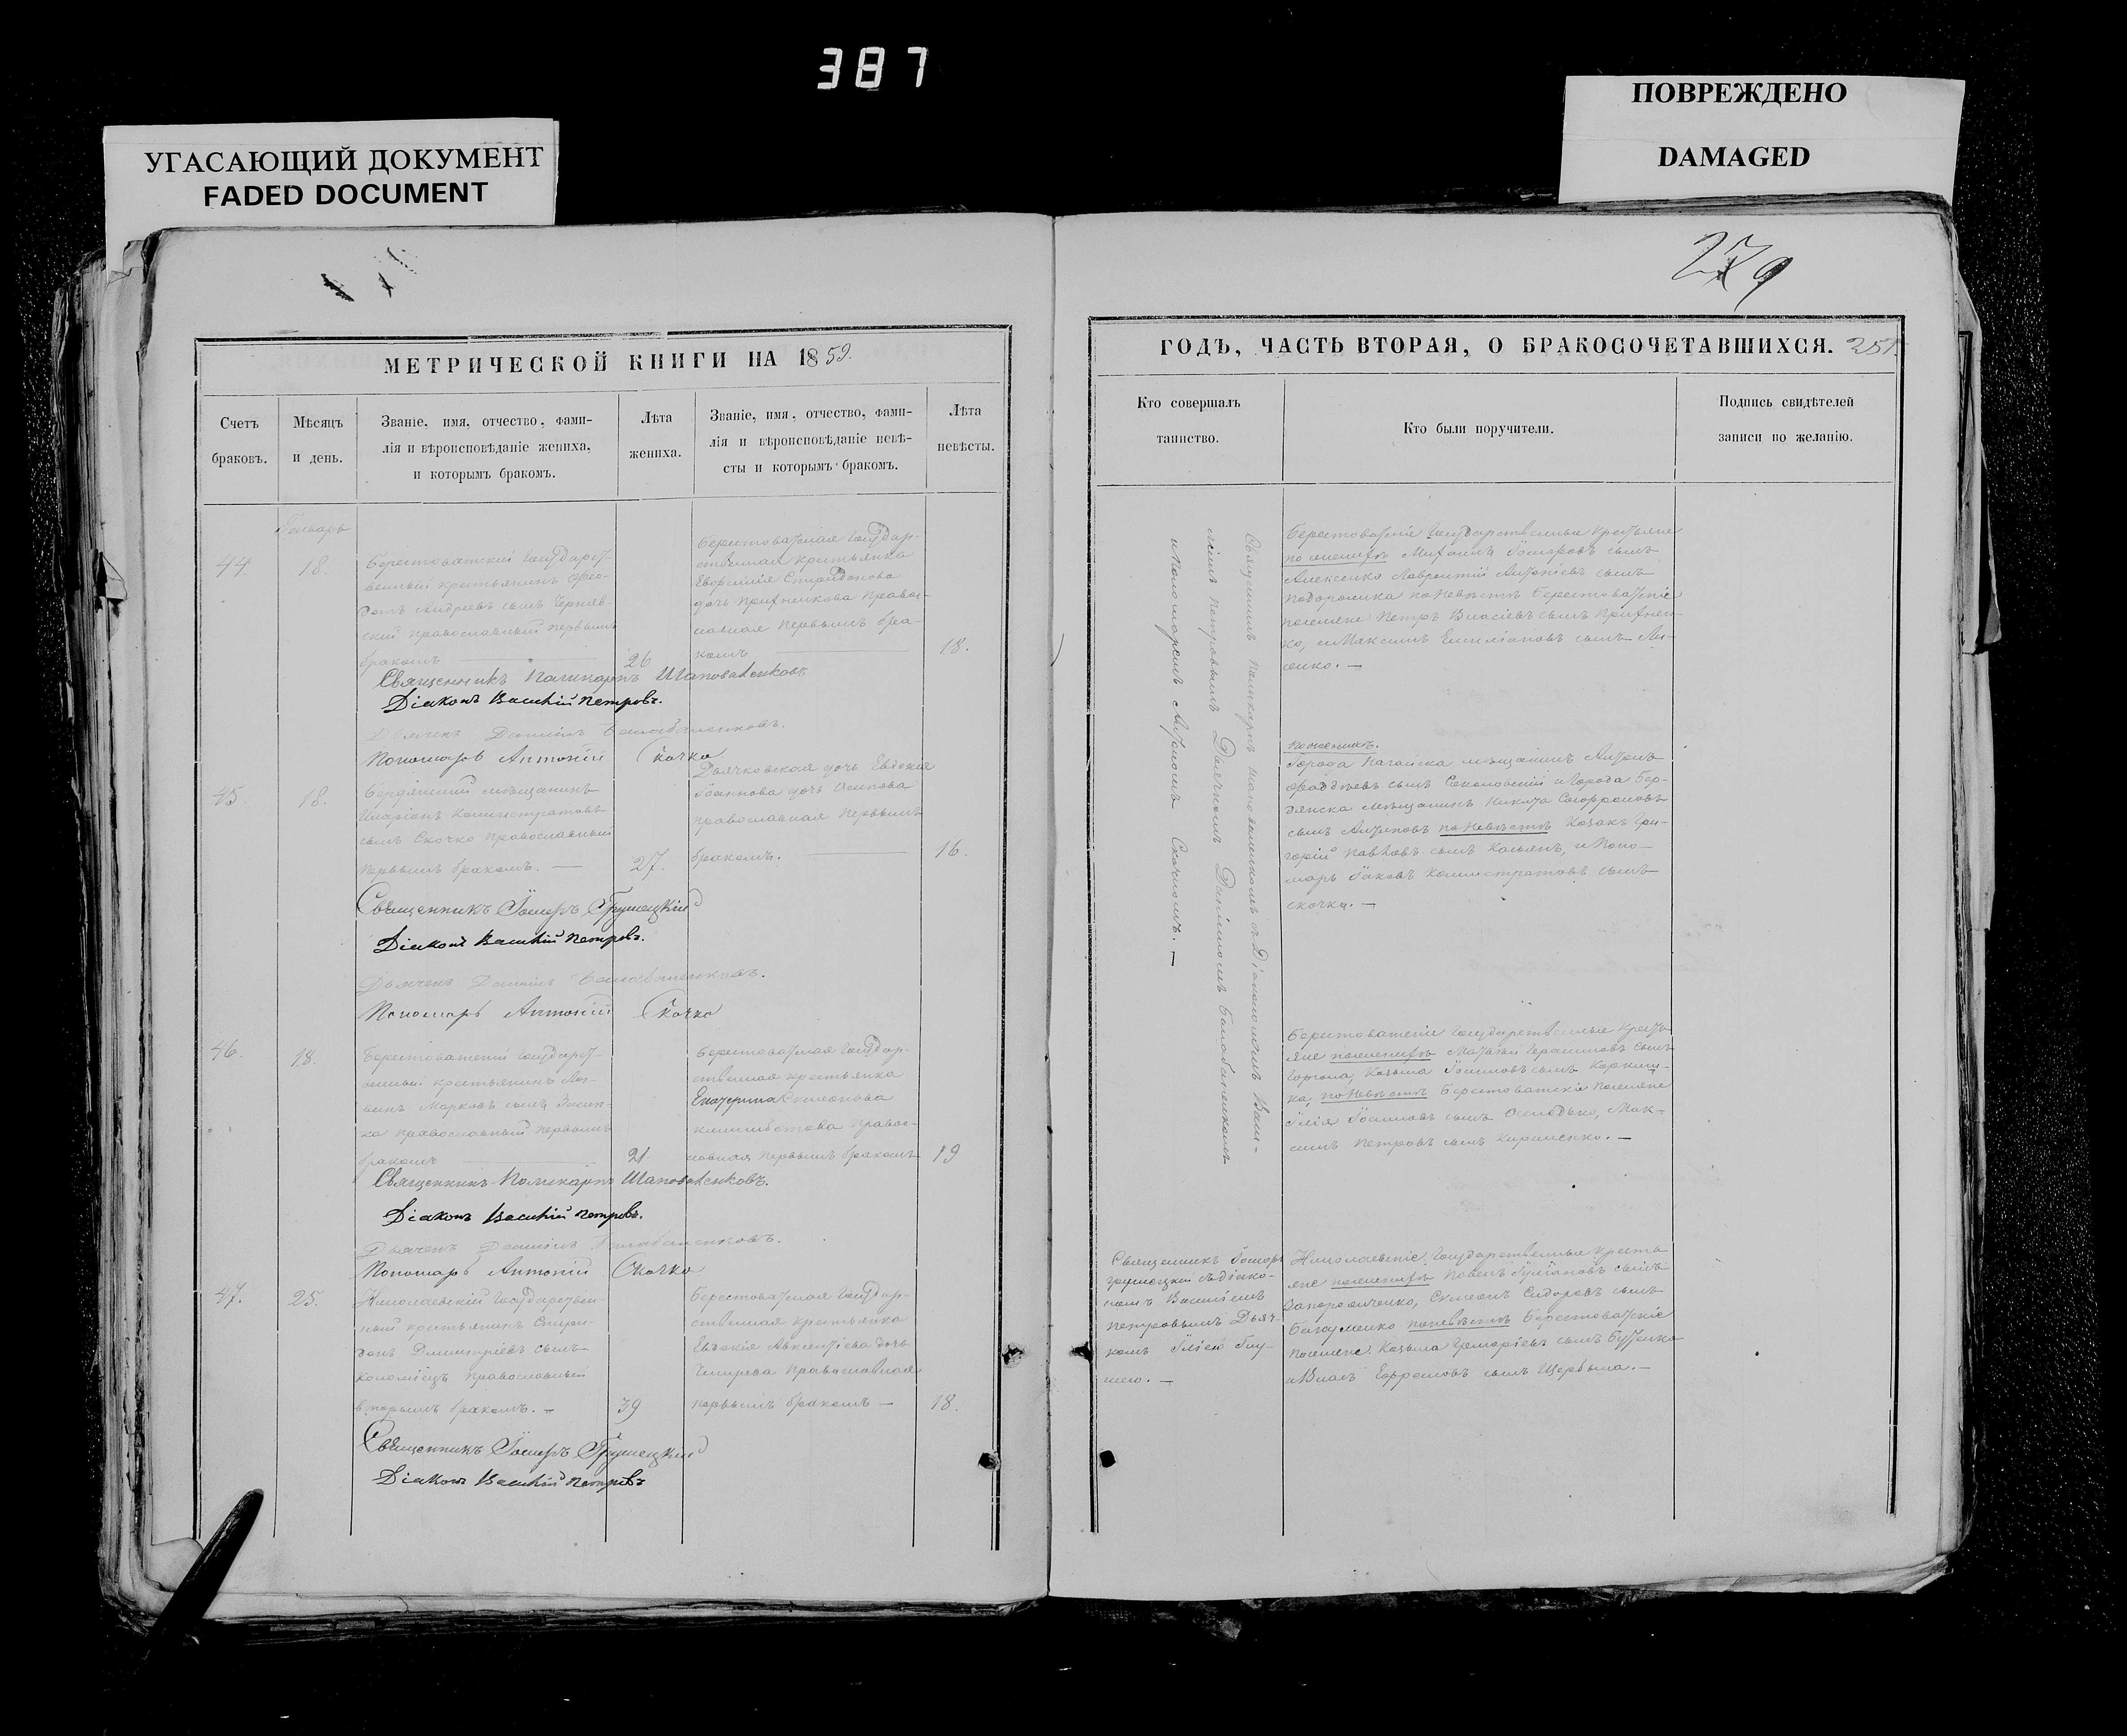 387
УГАСАЮЩИЙ ДОКУМЕНТ
FADED DOCUMENT
ПОВРЕЖДЕНО
DAMAGED
279
МЕТРИЧЕСКОЙ КНИГИ НА 1859.
Счетъ
браковъ.
Мѣсяцъ
и день.
Званіе, имя, отчество, фами-
лія и вѣроисповѣданіе жениха,
и которымъ бракомъ.
Лѣта
жениха.
Званіе, имя, отчество, фами-
лія и вѣроисповѣданіе невѣ-
сты и которымъ бракомъ.
Лѣта
невѣсты.
Генварь
44.
18.
Берестоватскій Государст-
венный крестьянинъ Фео-
дотъ Андреевъ сынъ
православный первымъ
бракомъ
26
Берестоватская Государ-
ственная крестьянка
Спиридонова
дочь Правос-
лавная первымъ бра-
комъ
18.
Священникъ Поликарпъ Шаповаленковъ
Діаконъ Василій Петровъ.
Дьячекъ Даніилъ Балабаненковъ.
Пономарь Антоній Скочко
45.
18.
Бердянскій мѣщанинъ
Иларіонъ Калистратовъ
сынъ Скочко православный
первымъ бракомъ. —
27.
Дьячковская дочь Евдокія
Іоаннова дочь Осипова
православная первымъ
бракомъ.
16.
Священникъ Іосифъ Грушецкій
Діаконъ Василій Петровъ.
Дьячекъ Даніилъ Балабаненковъ.
Пономарь Антоній Скочко
46.
18.
Берестоватскій Государст-
венный крестьянинъ
Марковъ сынъ
православный первымъ
бракомъ
21
Берестоватская Государ-
ственная крестьянка
Екатерина Симеонова
Правос-
лавная первымъ бракомъ
19
Священникъ Поликарпъ Шаповаленковъ.
Діаконъ Василій Петровъ.
Дьячекъ Даніилъ Балабаненковъ.
Пономарь Антоній Скочко
47.
25.
Николаевскій Государствен-
ный крестьянинъ Спири-
донъ Дмитріевъ сынъ
Коломіецъ Православный
вторымъ бракомъ. —
39
Берестоватская Государ-
ственная крестьянка
Евдокія Авксентіева дочь
Православная
первымъ бракомъ —
18.
Священникъ Іосифъ Грушецкій
Діаконъ Василій Петровъ
ГОДЪ, ЧАСТЬ ВТОРАЯ, О БРАКОСОЧЕТАВШИХСЯ. 251.
Кто совершалъ
таинство.
Кто были поручители.
Подпись свидѣтелей
записи по желанію.
Священникъ Поликарпъ Шаповаленковъ съ Діакономъ Васи-
ліемъ Петровымъ Дьячкомъ Даніиломъ Балабаненкомъ
и Пономаремъ Антоніемъ Скочкомъ. —
Берестоватскіе Государственные крестьяне
по женихѣ Михаилъ Іосифовъ сынъ
Алексенко Лаврентій Антоніевъ сынъ
по невѣстѣ Берестоватскіе
поселяне Петръ Власіевъ сынъ
ко, и Максимъ Емиліановъ сынъ Ли-
сенко. —
По женихѣ.
Города Ногайска мѣщанинъ Антонъ
Фаддѣевъ сынъ Соколовскій и города Бер-
дянска мѣщанинъ Никита Софроновъ
сынъ Антиповъ по невѣстѣ Козакъ Гри-
горій Павловъ сынъ Касьянъ, и Поно-
марь Іаковъ Калистратовъ сынъ
Скочко. —
Берестоватскіе Государственные кресть-
яне по женихѣ Матвѣй Герасимовъ сынъ
Козьма Іосифовъ сынъ
ка, по невѣстѣ Берестоватскіе Поселяне
Илія Іосифовъ сынъ Мак-
симъ Петровъ сынъ Кириленко. —
Священникъ Іосифъ
Грушецкій съ Діако-
номъ Василіемъ
Петровымъ Дьяч-
комъ
Николаевскіе Государственные кресть-
яне по женихѣ Павелъ Іуліановъ сынъ
Запорожченко, Симеонъ Сидоровъ сынъ
по невѣстѣ Берестоватскіе
Поселяне Козьма Григоріевъ сынъ Бутенко
и Власъ Ефремовъ сынъ Щербина. —